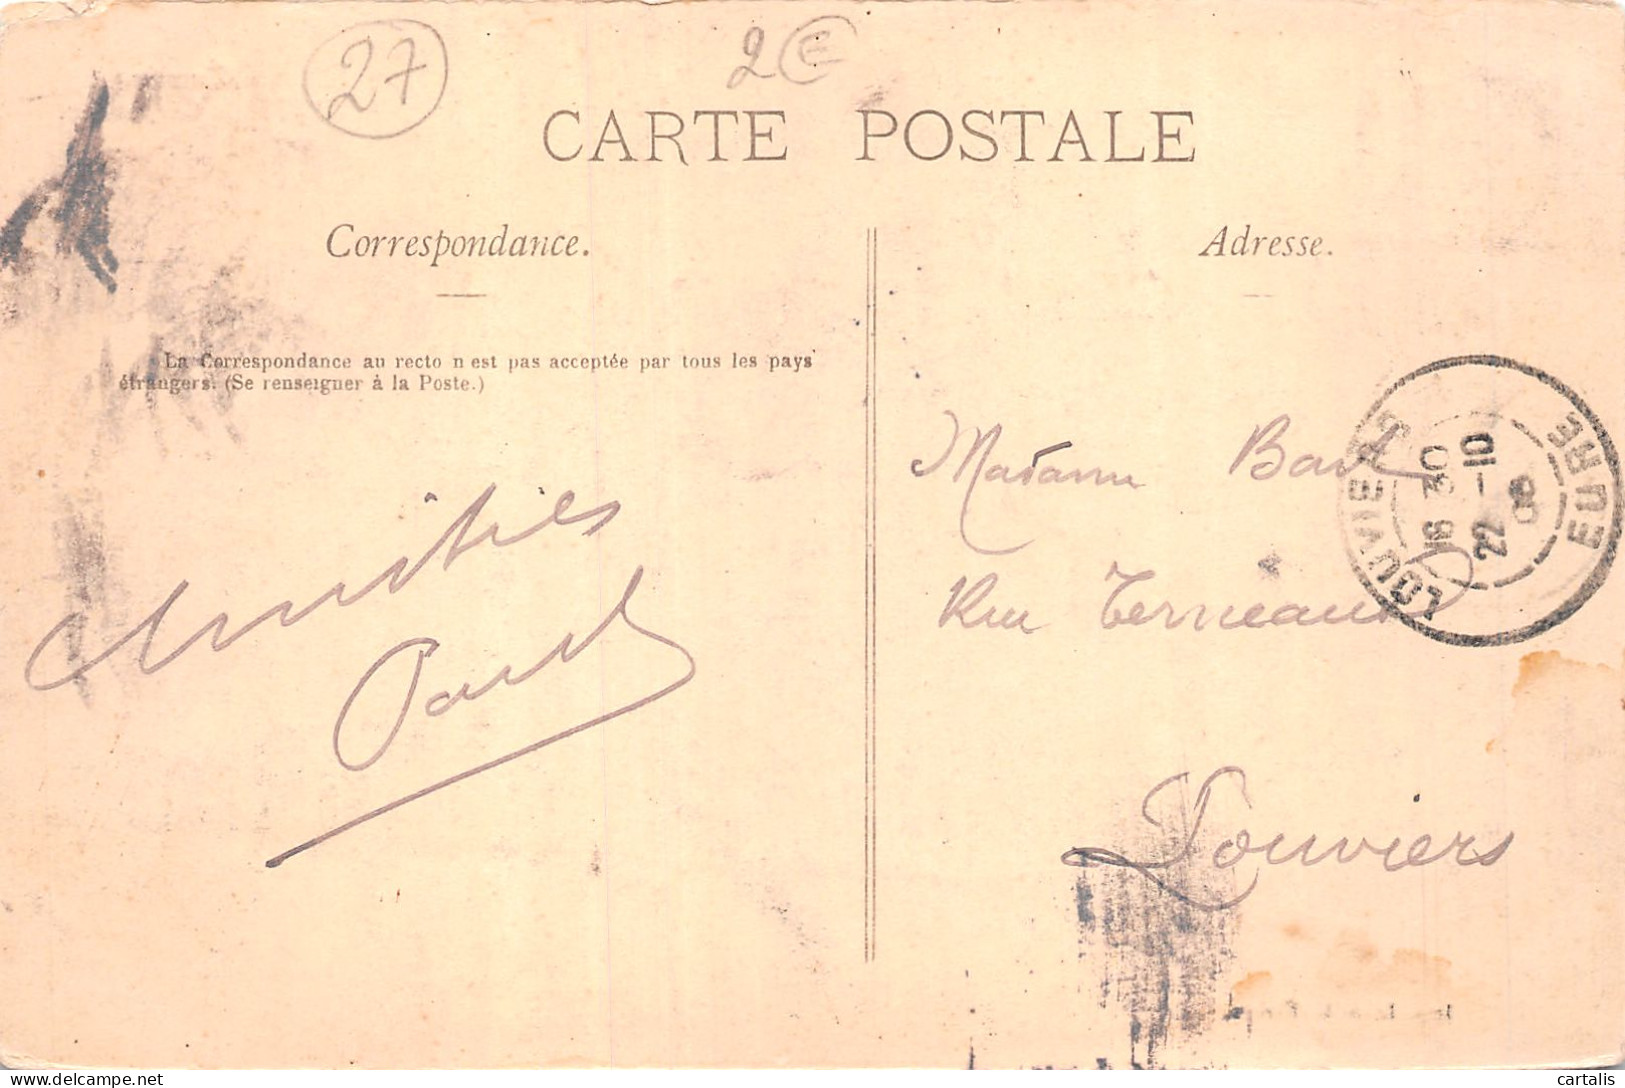 27
2 €
CARTE POSTALE
Correspondance.
La Correspondance au recto n'est pas acceptée par tous les pays
étrangers. (Se renseigner à la Poste.)
Amitiés
Paul
Adresse.
Madame
Rue Terneaux
Louviers
LOUVIERS
EURE
16 30
22-10
08
delcampe.net
cartalis